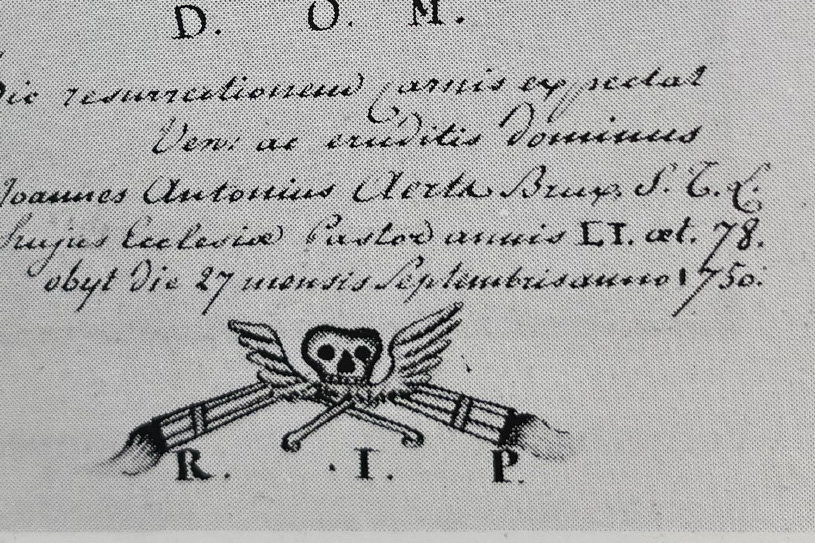 D. O. M.
Hic resurrectionem Carnis expectat
Ven: ac eruditis dominus
Joannes Antonius Aerts Brux. S. T. L.
hujus Ecclesiæ Pastor annis LI. æt. 78.
obyt die 27 mensis Septembris anno 1750.
R. I. P.